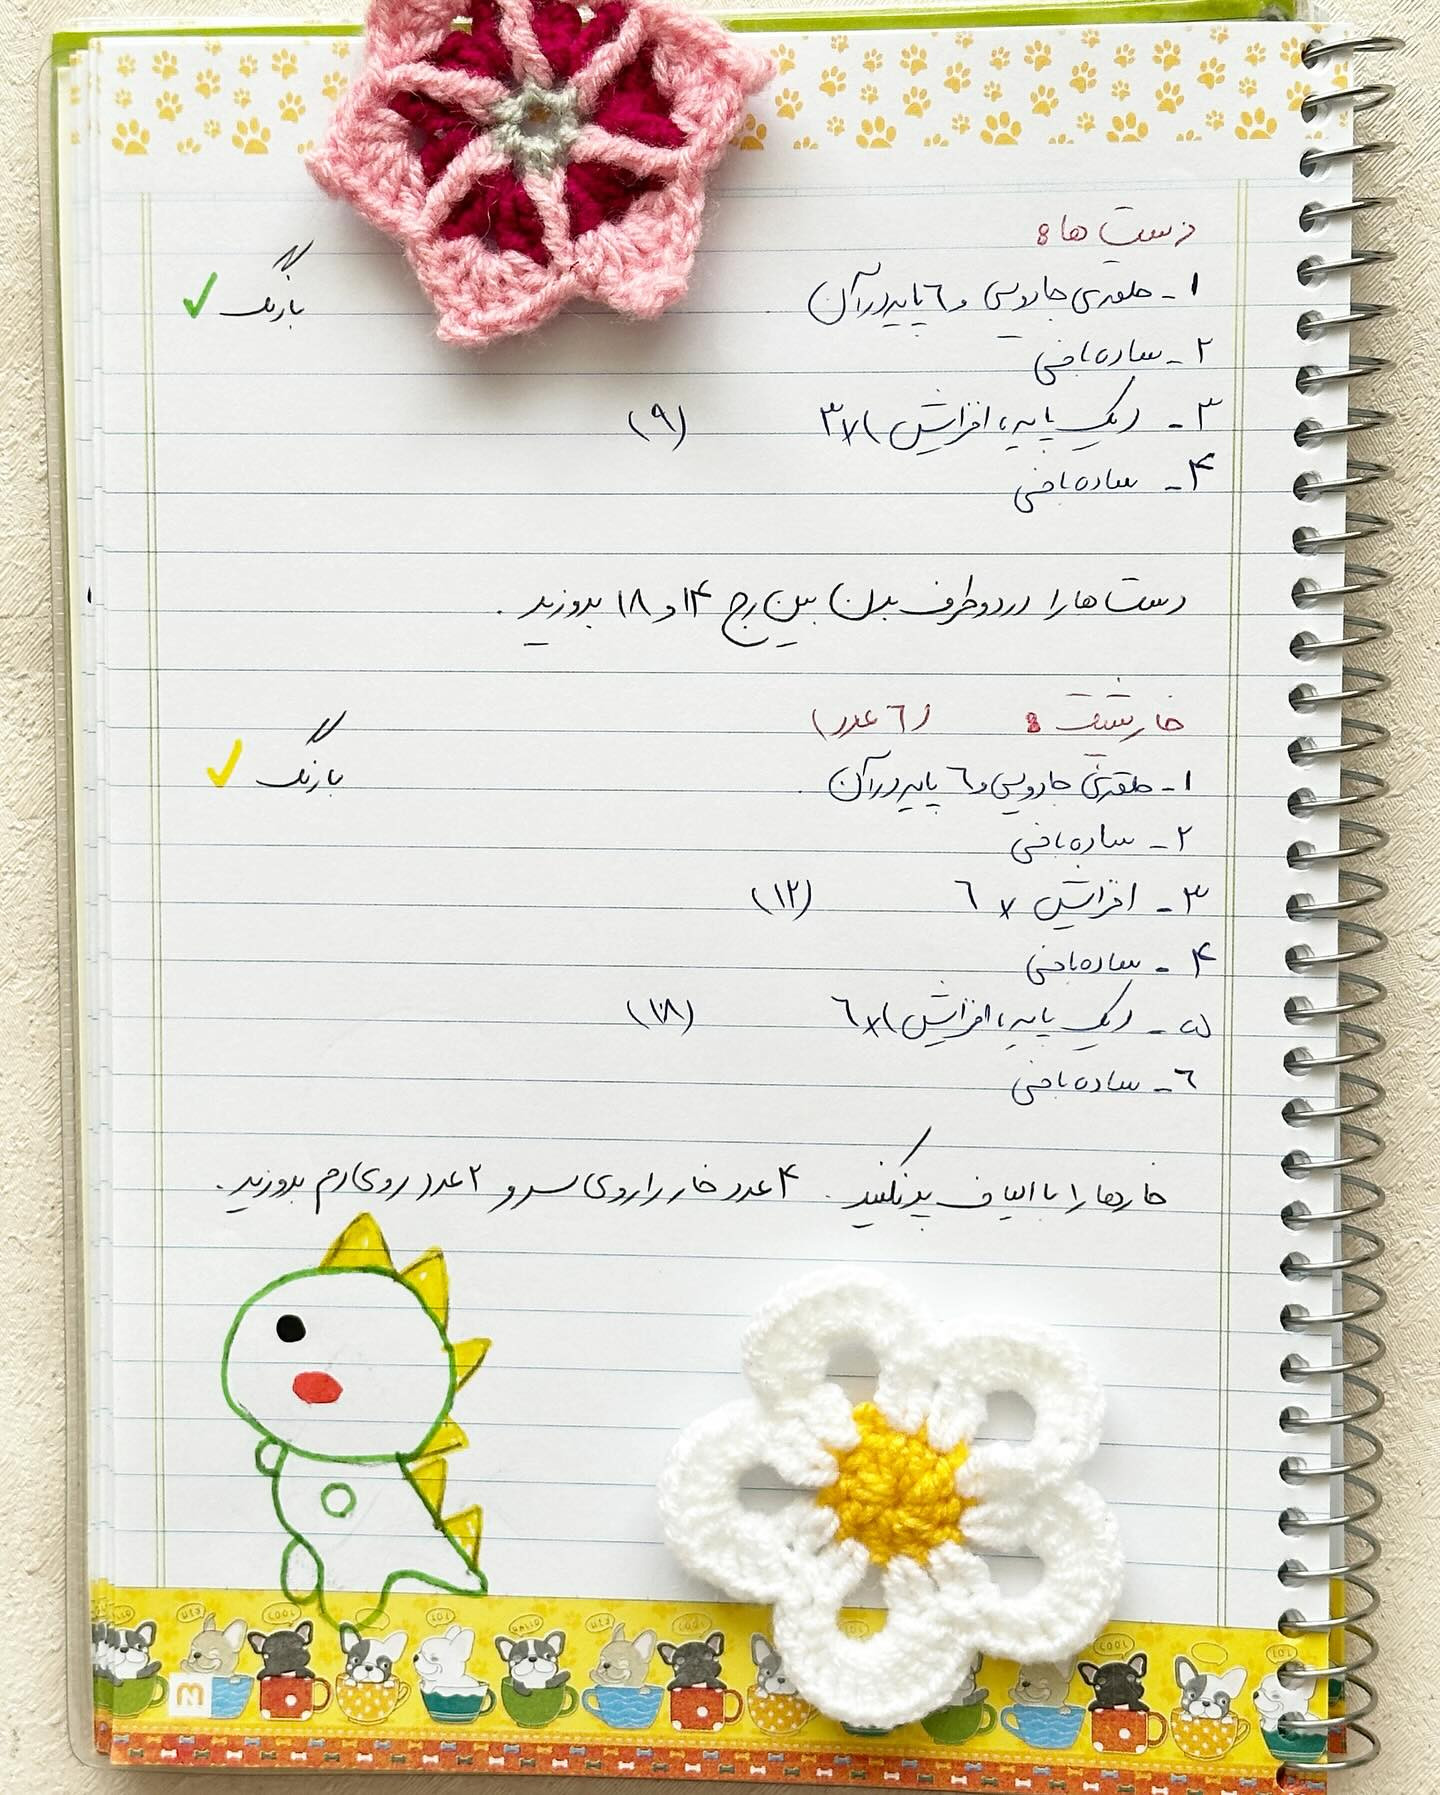 دست ها:
۱- حلقه‌ی جادویی و ٦ پایه در آن
با رنگ
۲- ساده بافی
۳- (یک پایه، افزایش)×۳ (۹)
۴- ساده بافی
دست ها را در دو طرف بدن بین رج ۱۴ و ۱۸ بدوزید.
خار پشت: (٦ عدد)
۱- حلقه‌ی جادویی و ٦ پایه در آن.
با رنگ
۲- ساده بافی
۳- افزایش × ٦ (۱۲)
۴- ساده بافی
۵- (یک پایه، افزایش)×٦ (۱۸)
٦- ساده بافی
خارها را با الیاف پر نکنید. ۴ عدد خار را روی سر و ۲ عدد روی دم بدوزید.